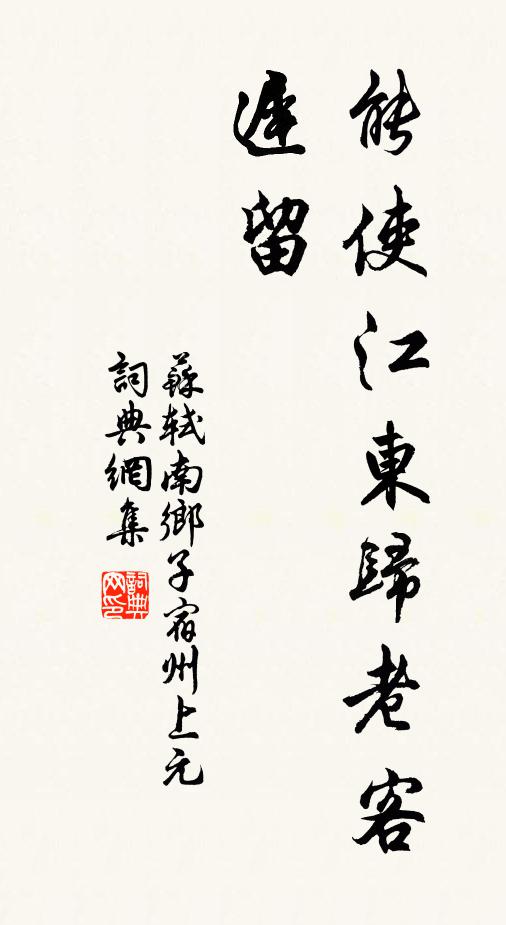 能使江東歸老客
遲留
蘇軾南鄉子宿州上元
詞典網集
詞典网印